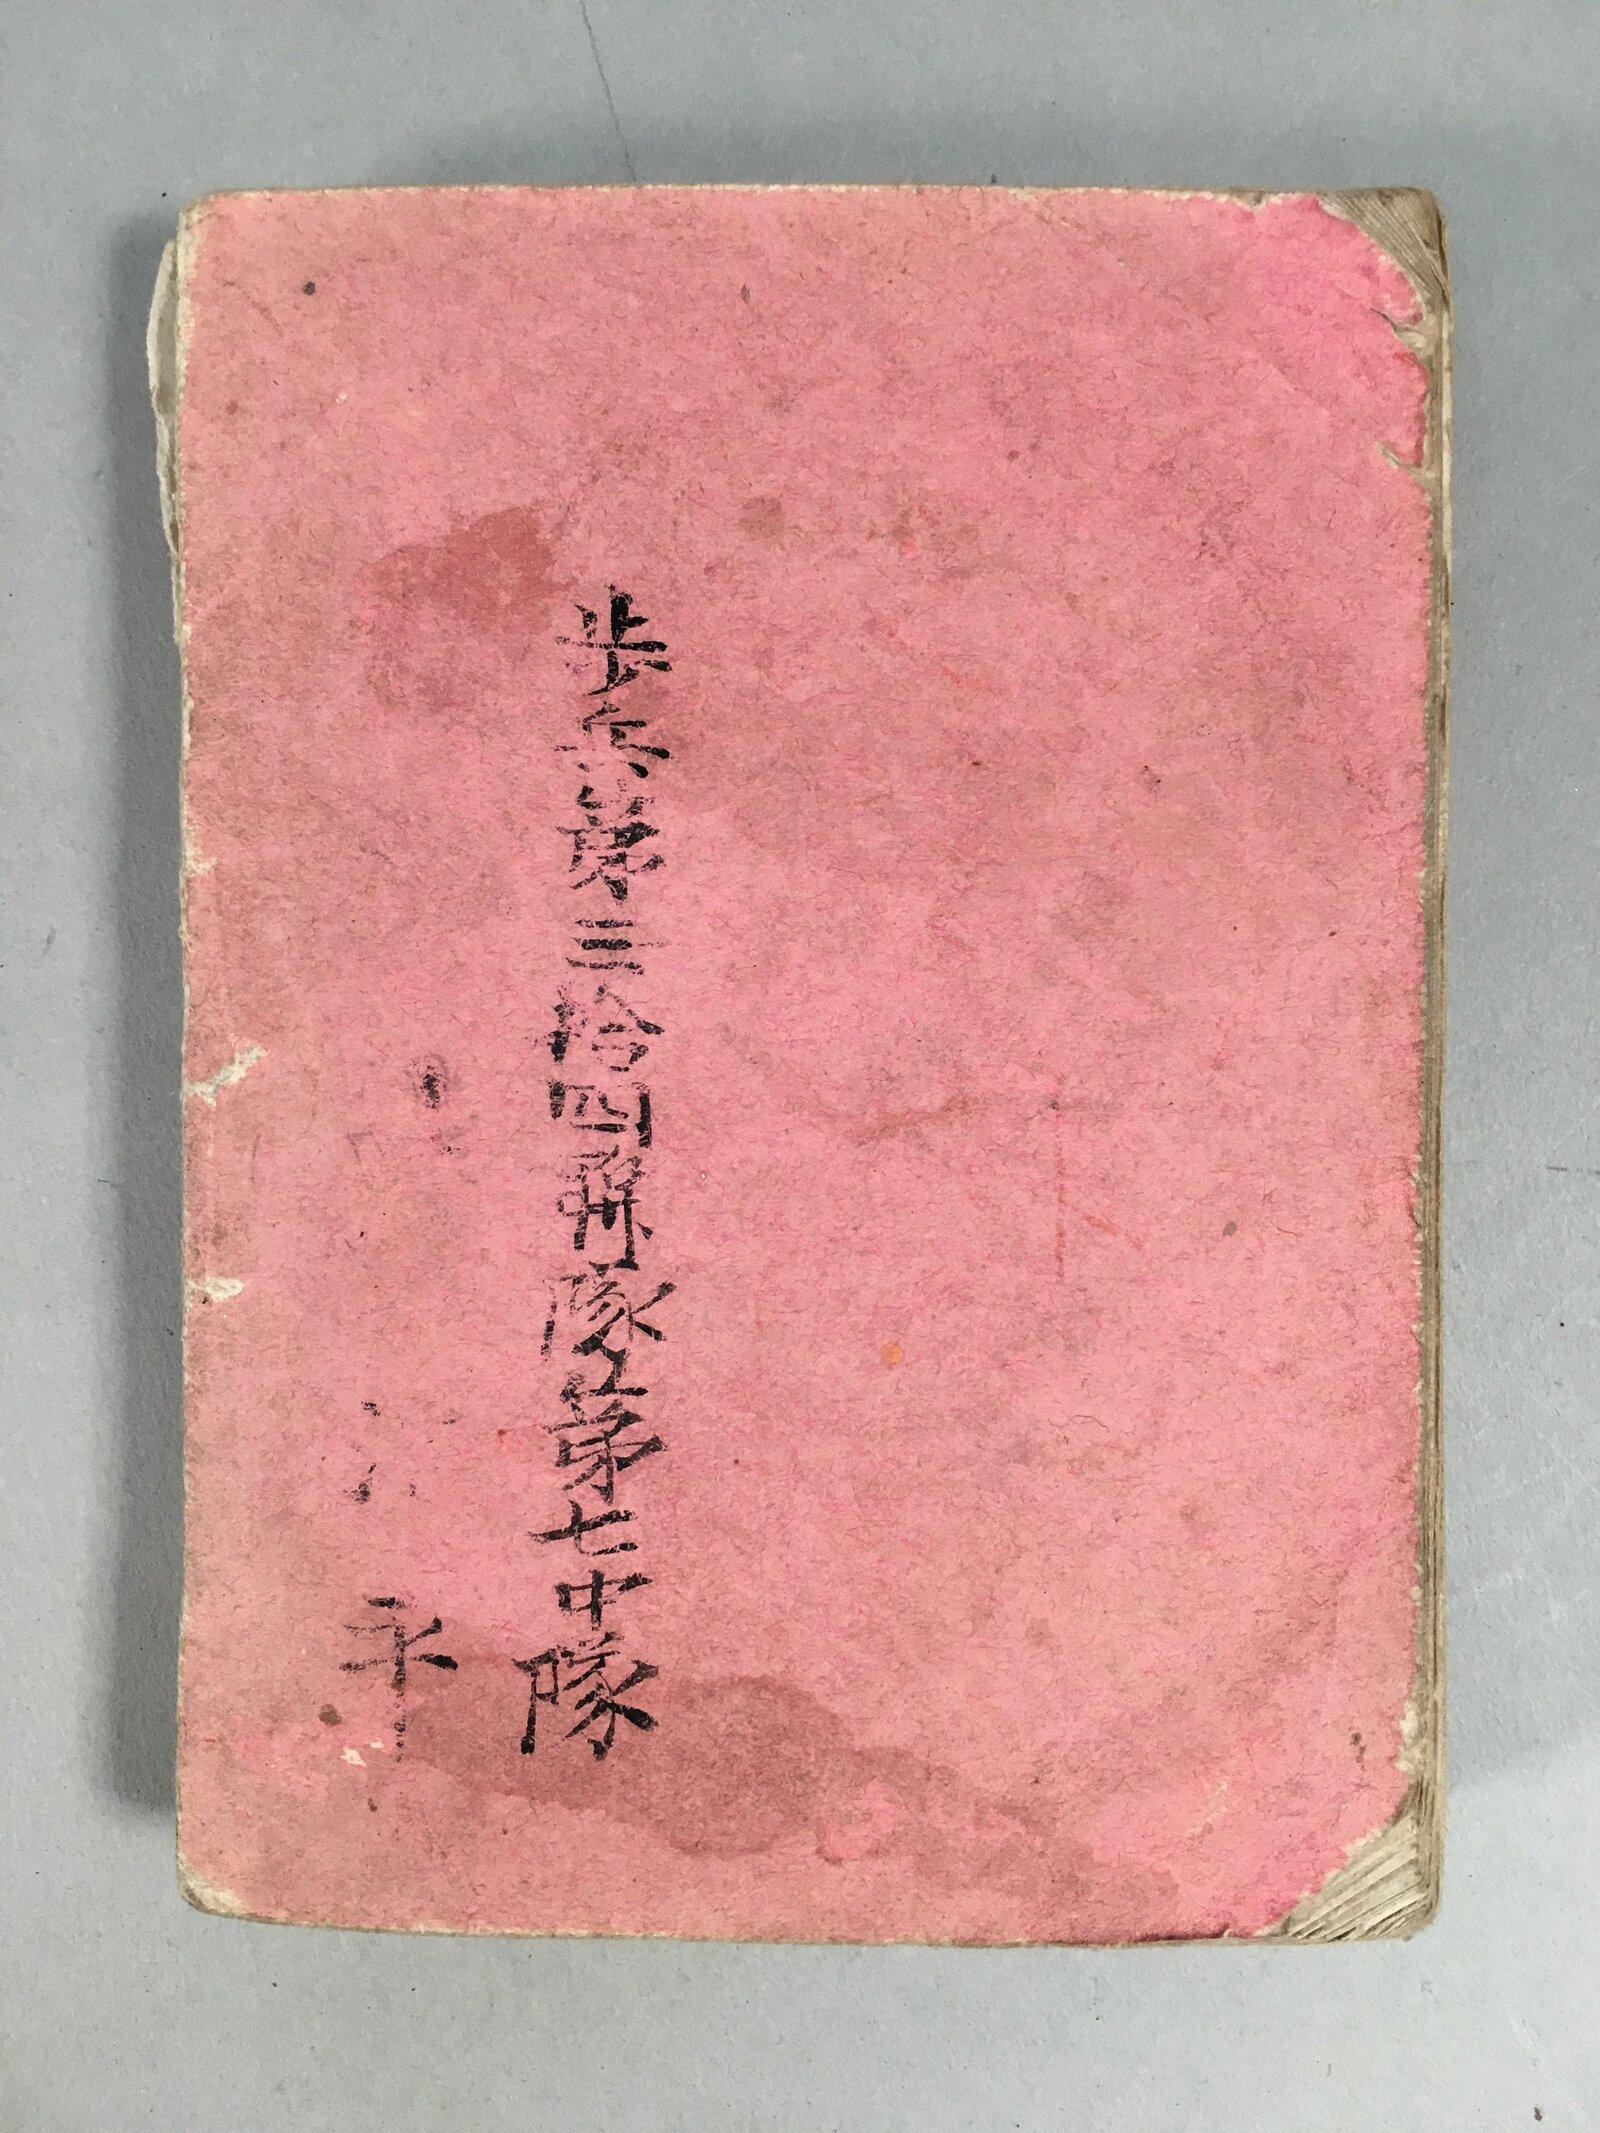 歩兵第三拾四聯隊第七中隊
平